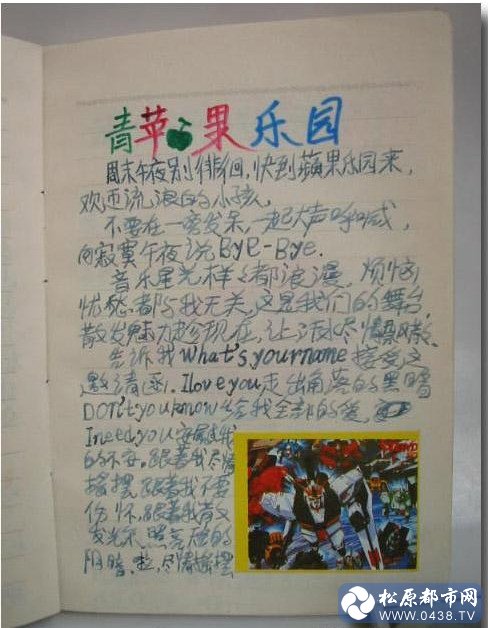 青苹果乐园
周末午夜别徘徊,快到蘋果乐园来,
欢迎流浪的小孩,
不要在一旁发呆,一起大声呼喊,
向寂寞午夜说Bye-Bye.
音乐星光样样都浪漫,烦恼
忧愁都与我无关,这是我们的舞台,
散发魅力趁现在,让汗水尽情飘散.
告诉我what's your name接受这
邀请函,I love you走出角落的黑暗
DON't you know给我全部的爱,
I need you安 我
的不安。跟着我尽情
摇摆,跟着我不要
伤怀,跟着我有又
发光 照亮 的
阴暗,啦,尽情摇摆
松原都市网
www.0438.TV